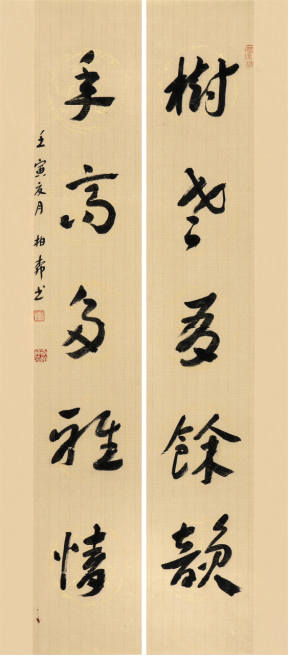 樹老餘韻
年高多雅情
壬寅夏月柏書